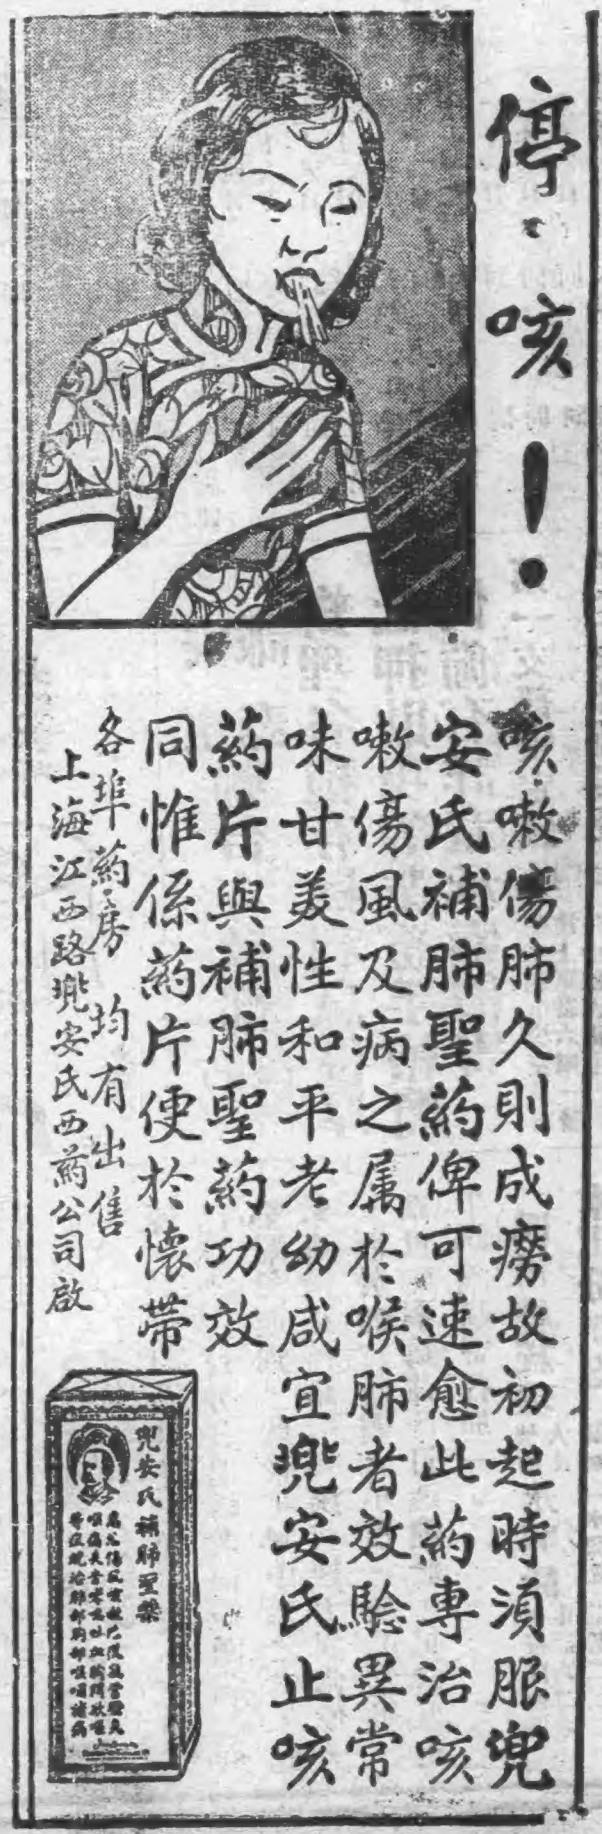 停咳！
咳嗽傷肺久則成癆故初起時須服兜
安氏補肺聖葯俾可速愈此葯專治咳
嗽傷風及病之属於喉肺者效驗異常
味甘美性和平老幼咸宜兜安氏止咳
葯片與補肺聖葯功效
同惟係葯片便於懷帶
各埠葯房均有出售
上海江西路兜安氏西葯公司啟
兜安氏補肺聖藥